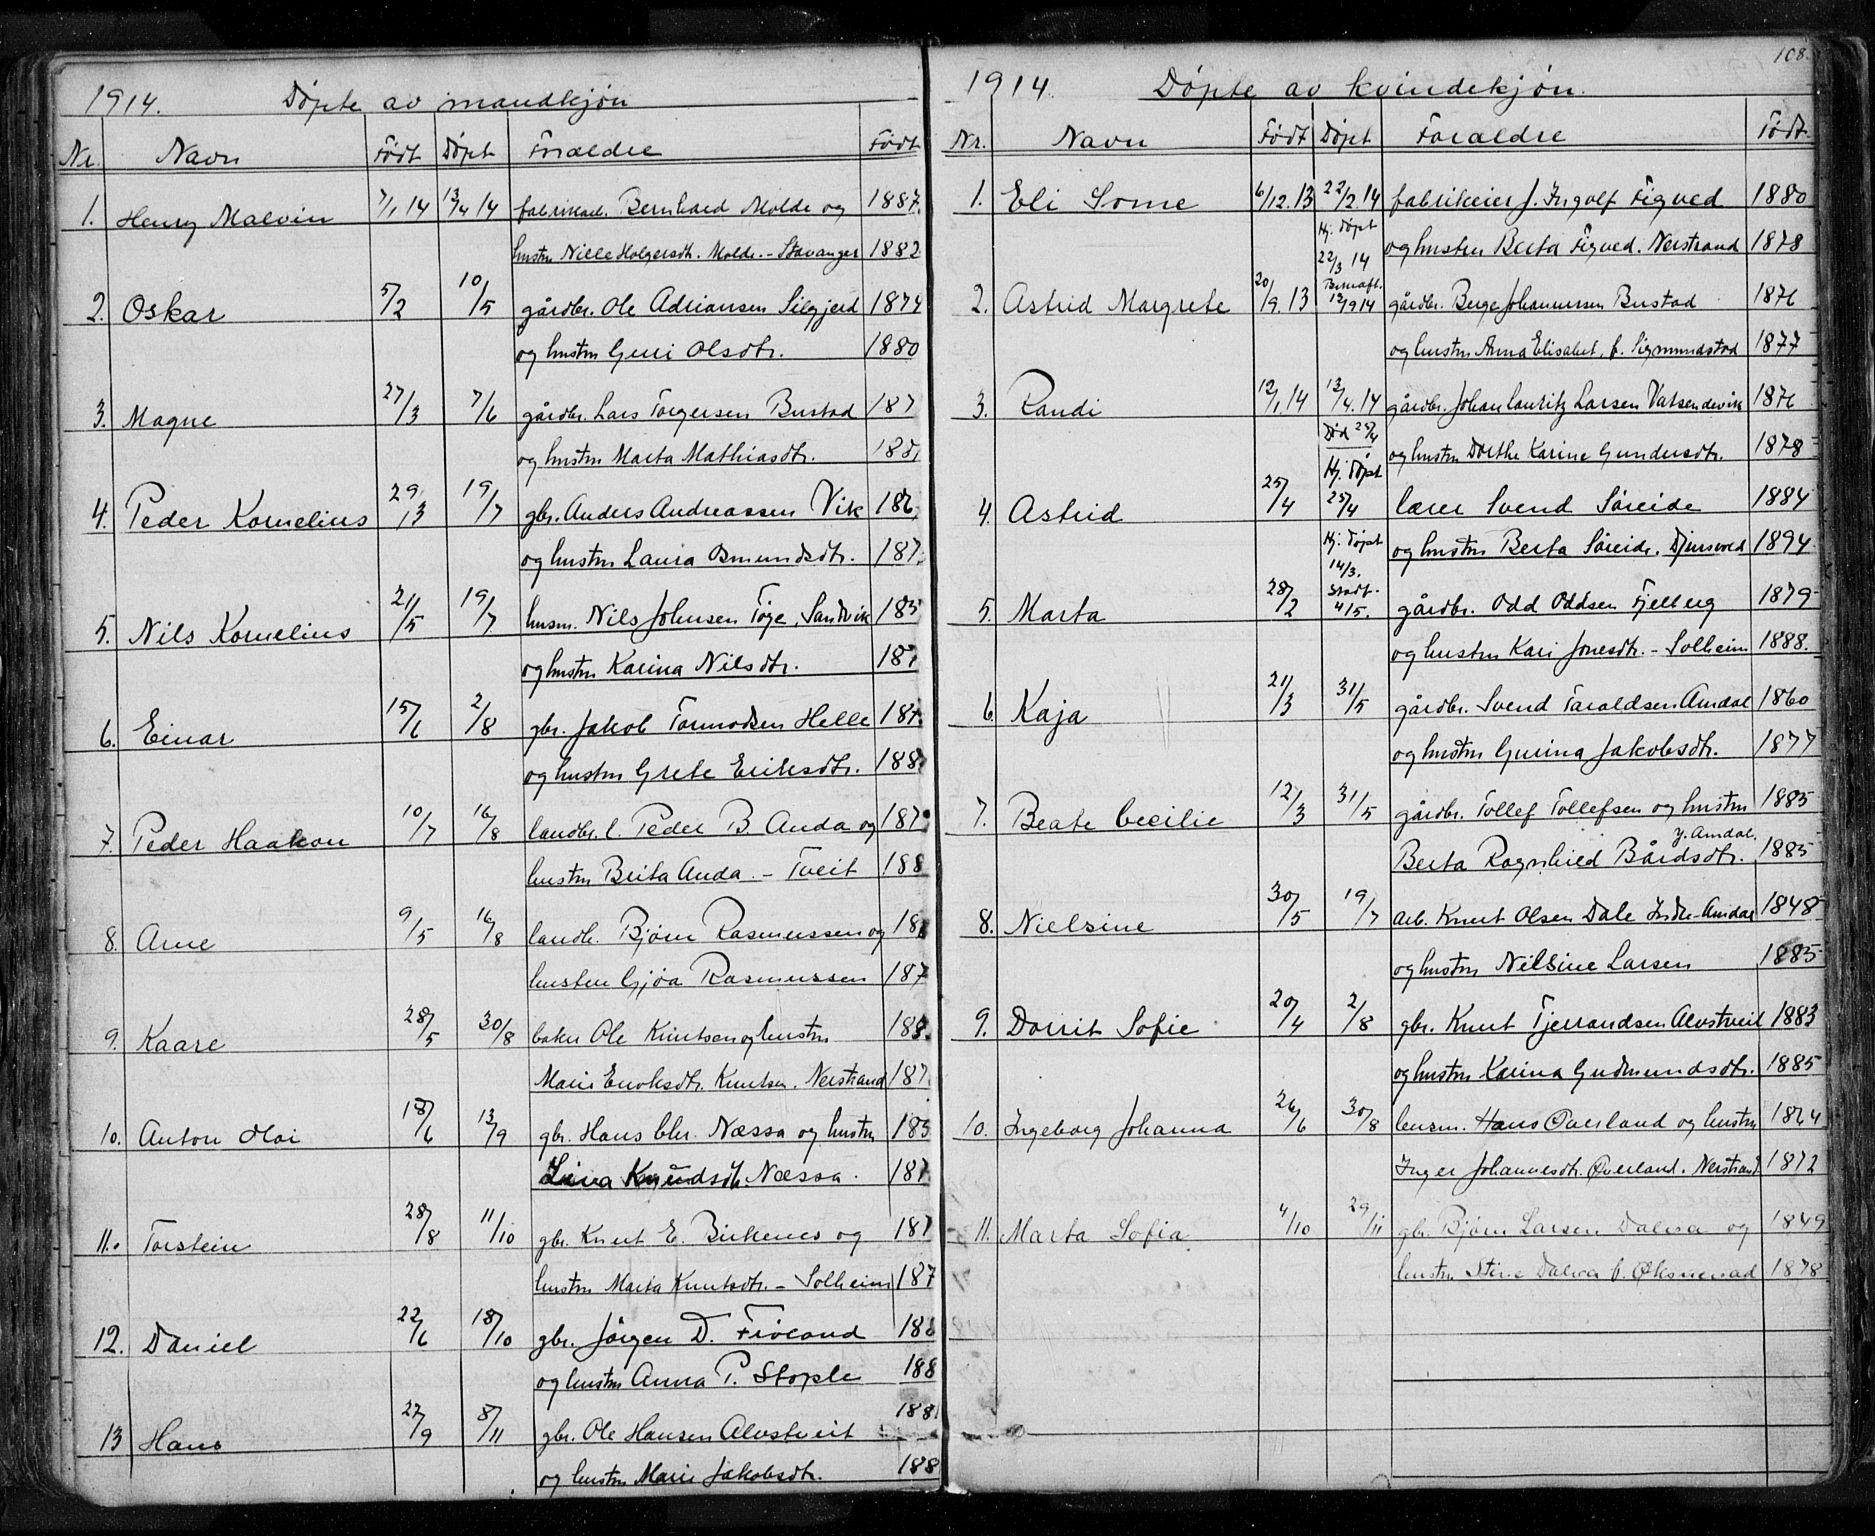 1914. Døpte av mandkjøn
Nr. Navn Født Døpt Foræeldre Født
1. Henry Malvin 7/1 14 13/4 14 fabrikarb. Bernhard Molde og 1887.
hustru Nille Holgersdtr. Molde. - Stavanger 1882
2. Oskar 5/2 10/5 gårdbr. Ole Adriansen Silgjerd 1874
og hustru Guri Olsdtr. 1880
3. Magne 27/3 7/6 gårdbr. Lars Torgersen Bustad 187
og hustru Marta Mathiasdtr. 188
4. Peder Kornelius 29/3 19/7 gbr. Anders Andreassen Vik 186
og hustru Laura Osmundsdtr. 187
5. Nils Kornelius 21/5 19/7 husm. Nils Johnsen Tøge, Sandvik 185
og hustru Karina Nilsdtr. 187
6. Einar 15/6 2/8 gbr. Jakob Tormodsen Helle 187
og hustru Grete Eriksdtr. 188
7. Peder Haakon 10/7 16/8 landbr.l. Peder B. Anda og 187
hustru Brita Anda. - Tveit 188
8. Arne 9/5 16/8 landh. Bjørn Rasmussen og 18
hustru Gjøa Rasmussen 187
9. Kaare 28/5 30/8 baker Ole Knutsen og hustru 188
Marie Enoksdtr. Knutsen. Nerstrand 187
10. Anton Olai 18/6 13/9 gbr. Hans Chr. Næssa og hustru 185
Lina Knudsdtr. Næssa. 187
11. Torstein 28/8 11/10 gbr. Knut E. Birkenes og 187
hustru Marta Knutsdtr. - Solheim 187
12. Daniel 22/6 18/10 gbr. Jørgen D. Fiøland 188
og hustru Anna P. Stople 188
13 Hans 27/9 8/11 gbr. Ole Hansen Alvstveit 188
og hustru Marie Jakobsdtr. 188
108.
1914. Døpte av kvindekjøn.
Nr. Navn Født Døpt Forældre Født
1. Eli Some 6/12. 13 22/2 14 fabrikeier J. Ingolf Tigved 1880
Hj. døpt 22/3 14 og hustru Berta Tigved. Nerstrand 1878
2. Astrid Margrete 20/9. 13 Bekræft. 13/9 14 gårdbr. Berge Johannessen Bustad 1876
og hustru Anna Elisabet, f. Sigmundstad 1877
3. Randi 12/1. 14 13/4. 14 gårdbr. Johan Lauritz Larsen Vatsendvik 1876
Død 25/4 og hustru Dorthe Karine Gundersdtr. 1878
4. Astrid 25/4 Hj. døpt 25/4 lærer Svend Søreide 1884
Hj. døpt 14/3. og hustru Berta Søreide. Djursvod 1894
5. Marta 28/2 Stadf. 4/5. gårdbr. Odd Oddsen Fjellberg 1879
og hustru Kari Jonesdtr. - Solheim 1888.
6 Kaja 21/3 31/5 gårdbr. Svend Taraldsen Amdal 1860
og hustru Gurina Jakobsdtr. 1877
7. Beate Cecilie 12/3 31/5 gårdbr. Tollef Tollefsen og hustru 1885
Berta Ragnhild Bårdsdtr. Y. Amdal. 1885
8. Nielsine 30/5 19/7 arb. Knut Olsen Dale Indre Amdal 1848
og hustru Nilsine Larsen 1885
9. Dorrit Sofie 20/4 2/8 gbr. Knut Tjerrandsen Alvstveit 1883
og hustru Karina Gudmundsdtr. 1885
10. Ingeborg Johanna 26/6 30/8 lensm. Hans Øverland og hustru 1864
Inger Johannesdtr. Øverland. Nerstrand 1872
11. Marta Sofia 4/10 29/11 gbr. Bjørn Larsen Dalva og 1849
hustru Stine Dalva f. Øksnevad 1878